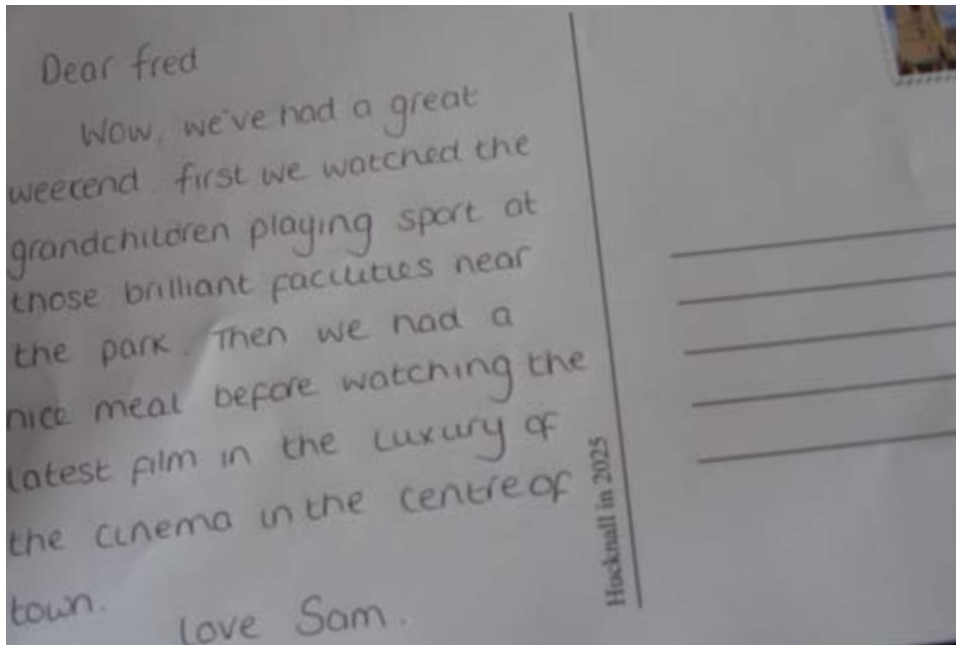 Dear fred
Wow, we've had a great
weekend. first we watched the
grandchildren playing sport at
those brilliant facilities near
the park. Then we had a
nice meal before watching the
latest film in the luxury of
the cinema in the centre of
town.
Love Sam.
Hucknall in 2025